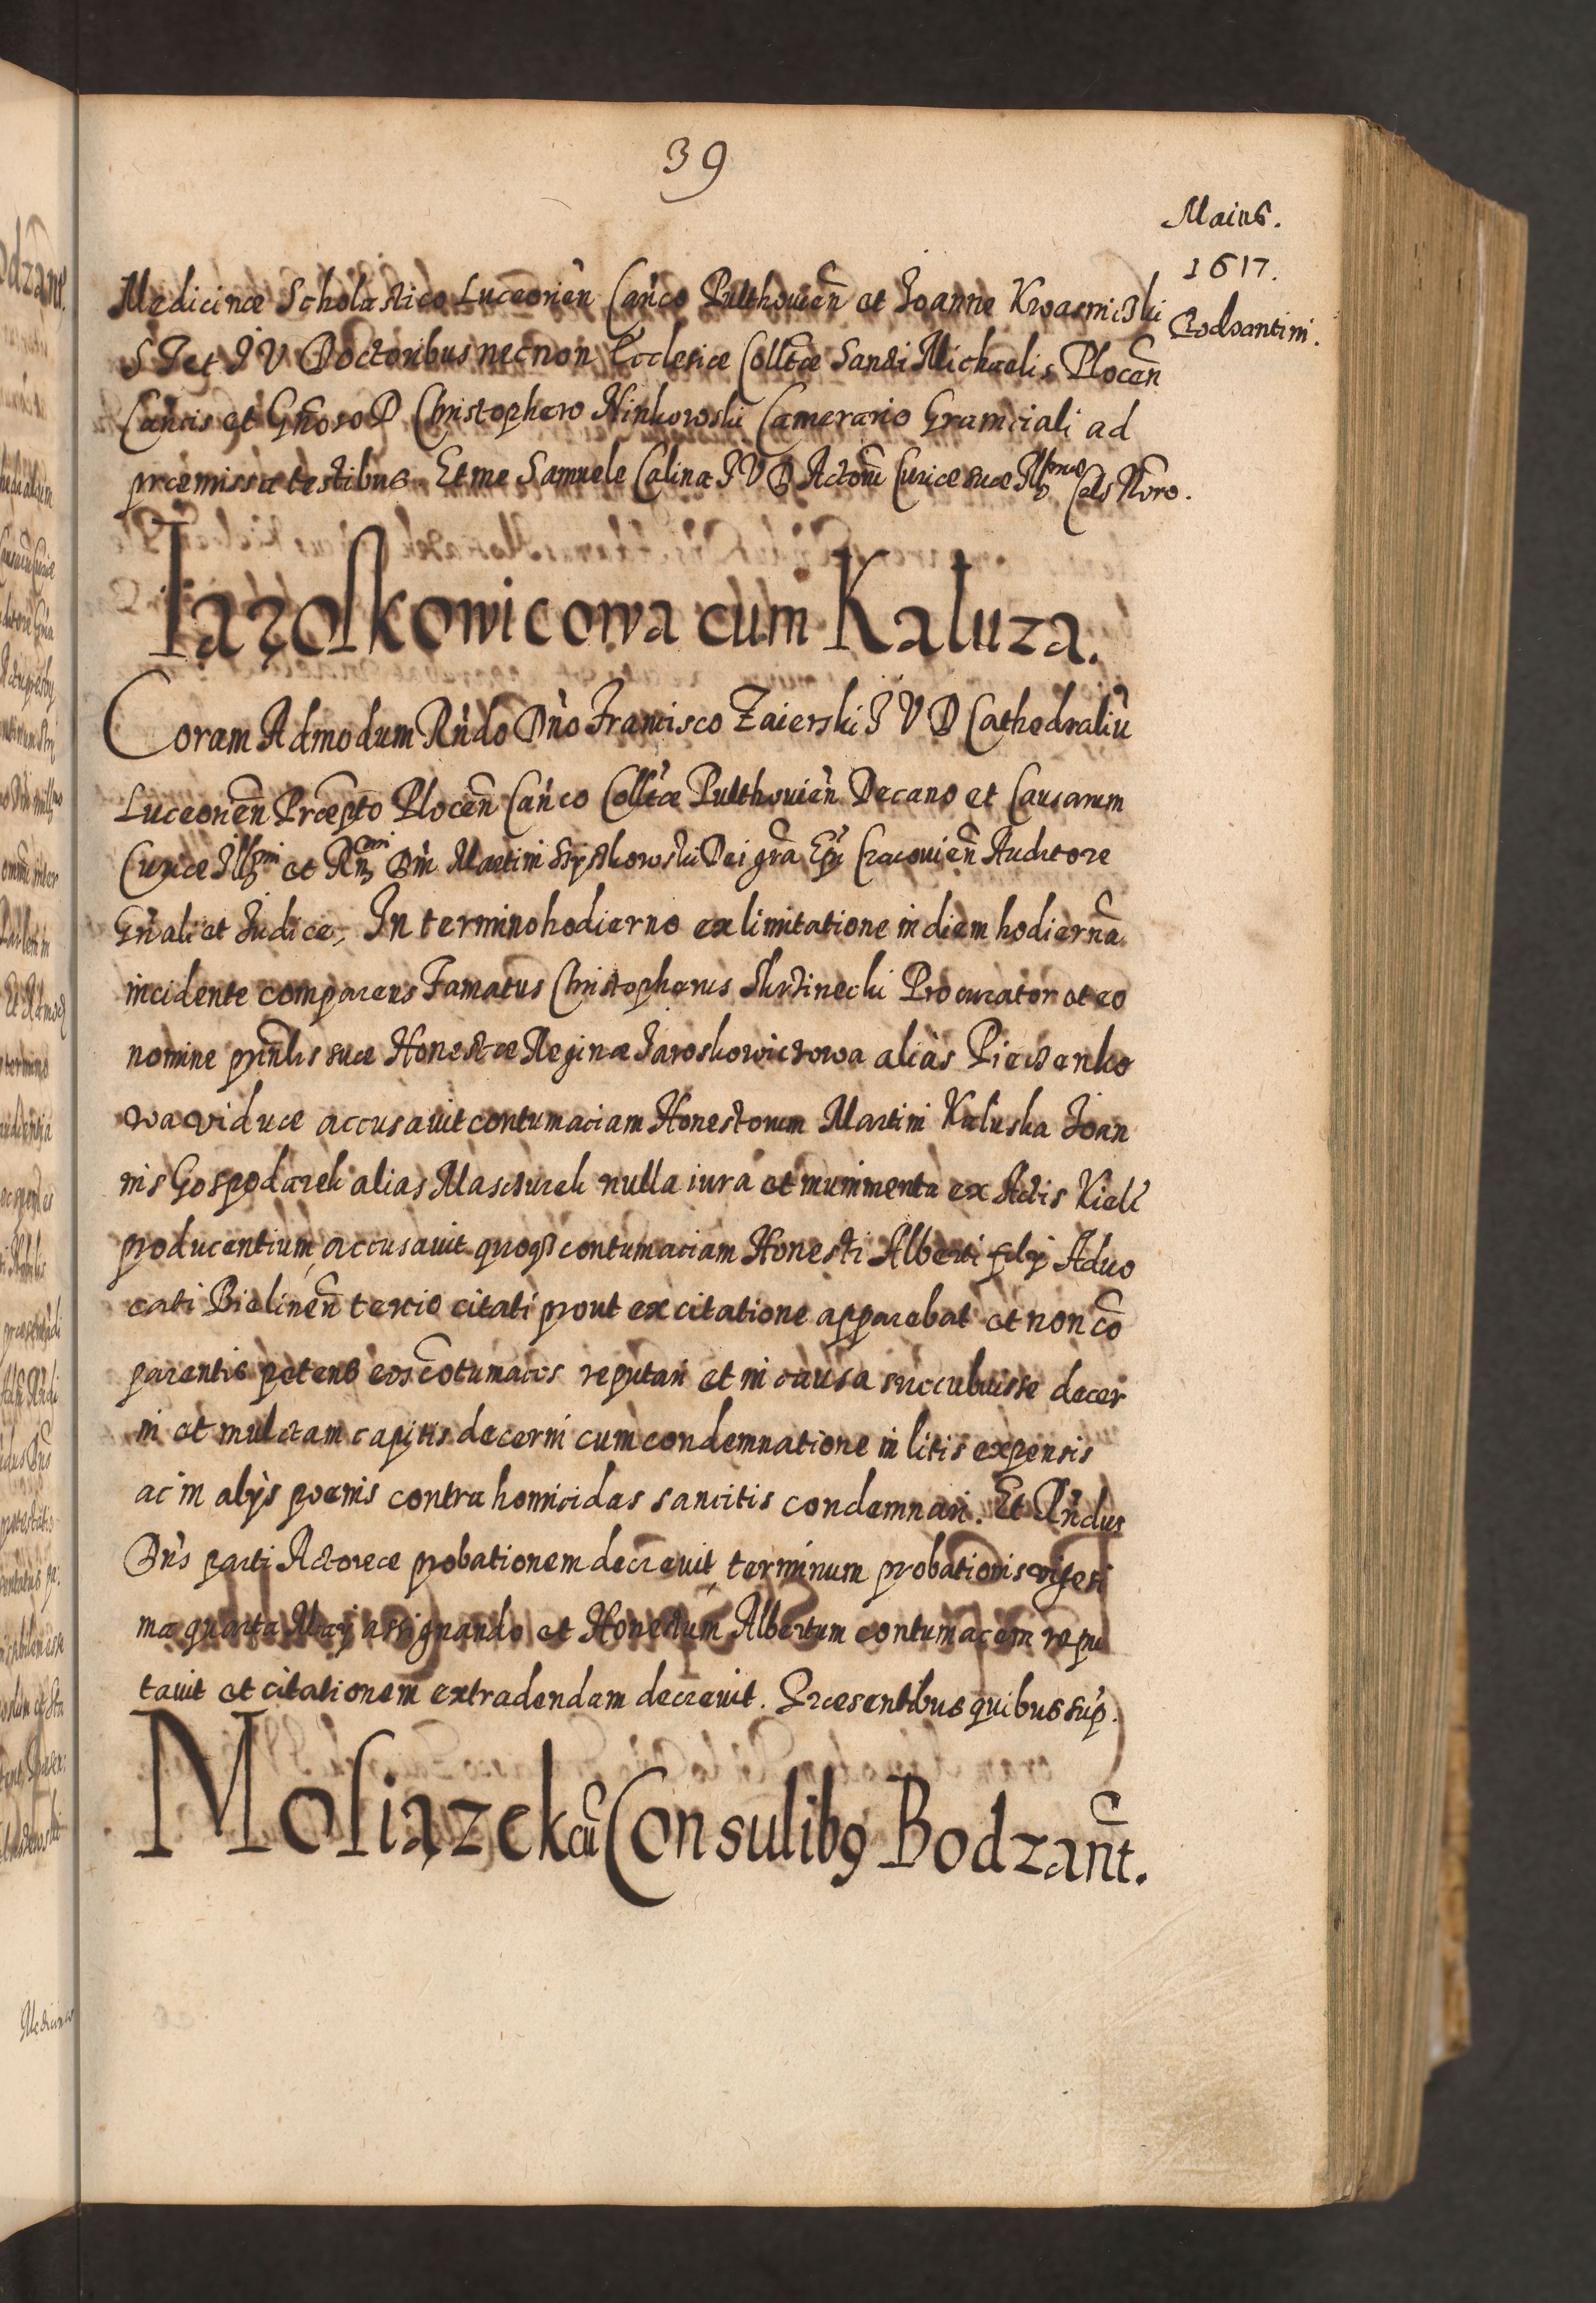 39
Maius.
1617.
Bodzantini.
Medicinæ Scholastico Luceorien̄ Cañco Pulthouien̄ et Joanne Kwasniczki
S T et J V Doctoribus necnon Ecclesiæ Coll̃tæ Sancti Michaelis Plocen̄
Cañcis et Gñoso D Christophero Ninkowski Camerario Gramciali ad
præmissa testibus. Et me Samuele Calina J V D Actorū Curiæ suæ Ill Cels Noro.
Jązoſkowicowa cum Kaluza.
Coram Admodum Rñdo Dño Francisco Zaierski J V D Cathedraliū
Luceorien̄ Præpto Plocen̄ Cañco Coll̃tæ Pulthouien̄ Decano et Causarum
Curiæ Illmi et Rmi Dñi Martini Szyszkowski Dei gr̃a Ep̃i Cracouien̄ Auditore
Gñali et Judice, In termino hodierno ex limitatione in diem hodiernā
incidente comparens Famatus Christopherus Procurator et eo
nomine prin̄lis suæ Honestæ Reginæ Jaroskowiczowa alias Pieczenko
wa viduæ accusauit contumaciam Honestorum Martini Kaluska Joan
nis Gospodarek alias Masczurek nulla iura et munimenta ex Actis Kiel̃
producentium, accusauit quoqȝ contumaciam Honesti Alberti Aduo
cati Bielinen̄ tertio citati prout ex citatione apparebat et non cō
parentis petens eos cōtumaces reputari et in causa succubuisse decer
ni et mulctam capitis decerni cum condemnatione in litis expensis
ac in alijs poenis contra homicidas sancitis condemnari. Et Rñdus
Dñs parti Actoreæ probationem decreuit, terminum probationis vigesi
ma quarta Maij assignando et Honestum Albertum contumacem repu
tauit et citationem extradendam decreuit. Præsentibus quibus sup̃.
Moſiązek cū Consulibꝰ Bodzan̄t.